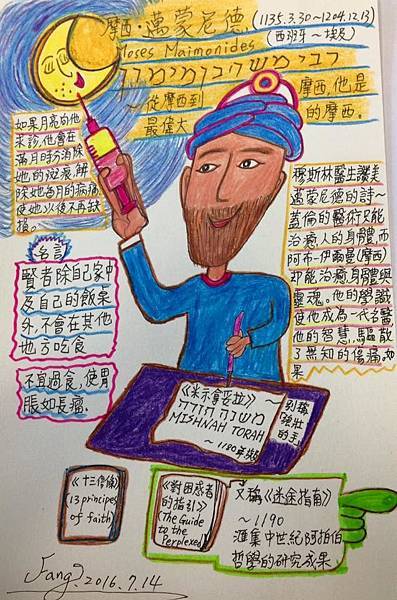 摩西·邁蒙尼德
(1135.3.30～1204.12.13)
(西班牙～埃及)
Moses Maimonides
～從摩西到
摩西,他是
最偉大
的摩西.
如果月亮向他
求診,他會在
滿月時分消除
她的斑痕,解
除她每月的病痛,
使她以後不再缺
損。
名言
賢者除自己家中
及自己的飯桌
外,不會在其他
地方吃食
不宜過食,使胃
脹如長瘤.
穆斯林醫生讚美
邁蒙尼德的詩～
蓋倫的醫術只能
治癒人的身體,而
阿布-伊勒曼(摩西)
卻能治癒身體與
靈魂。他的學識
使他成為一代名醫,
他的智慧,驅散
了無知的傷痛,如
果
《米示拿妥拉》～
משנה תורה
MISHNAH TORAH
～1180年
強壯的手
《十三信條》
(13 principes
of faith)
《對困惑者
的指引》
(The Guide
to the
Perplexed)
又稱《迷途指南》
～1190
滙集中世紀阿拉伯
哲學的研究成果
Fang. 2016.7.14